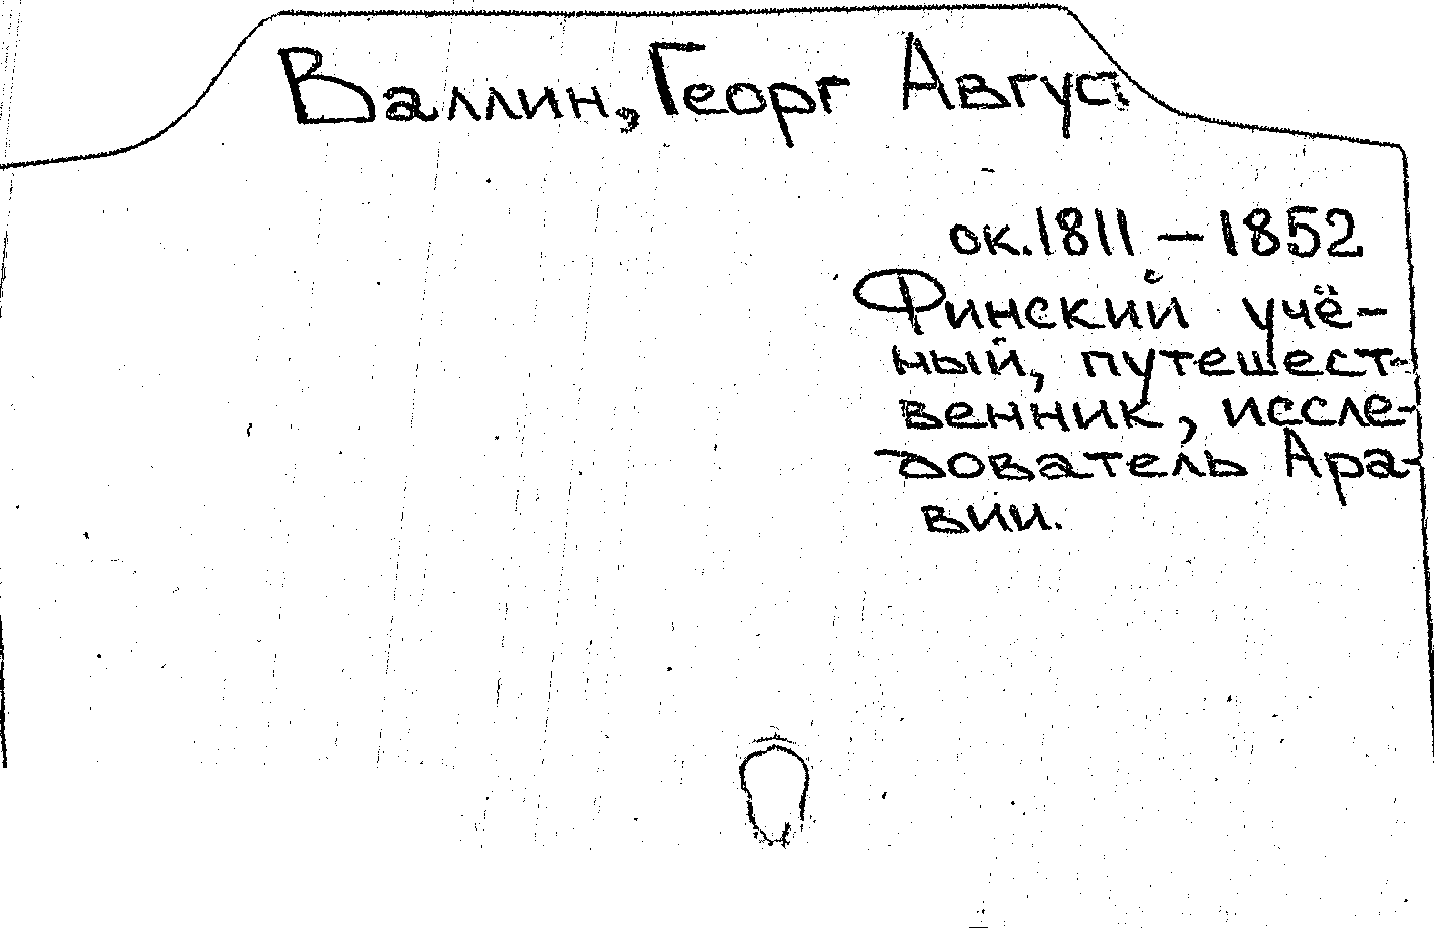 Валлин, Георг Август
ок. 1811 – 1852
Финский учё-
ный, путешест-
венник, иссле-
дователь Ара-
вии.